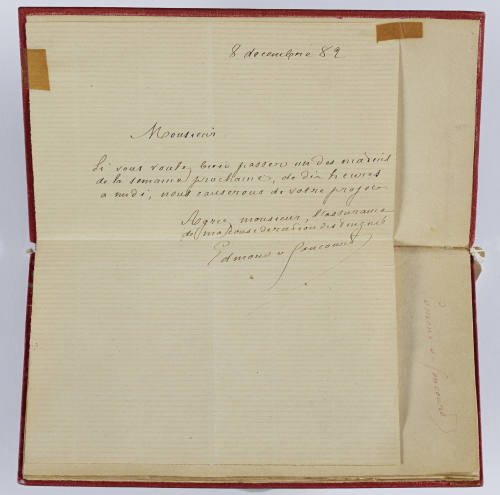 8 decembre 82
Monsieur
Si vous voulez bien passer un des matins
de la semaine prochaine, de dix heures
a midi, nous causerons de votre projet
Agréez, monsieur, l'assurance
de ma consideration distinguée
Edmond de Goncourt